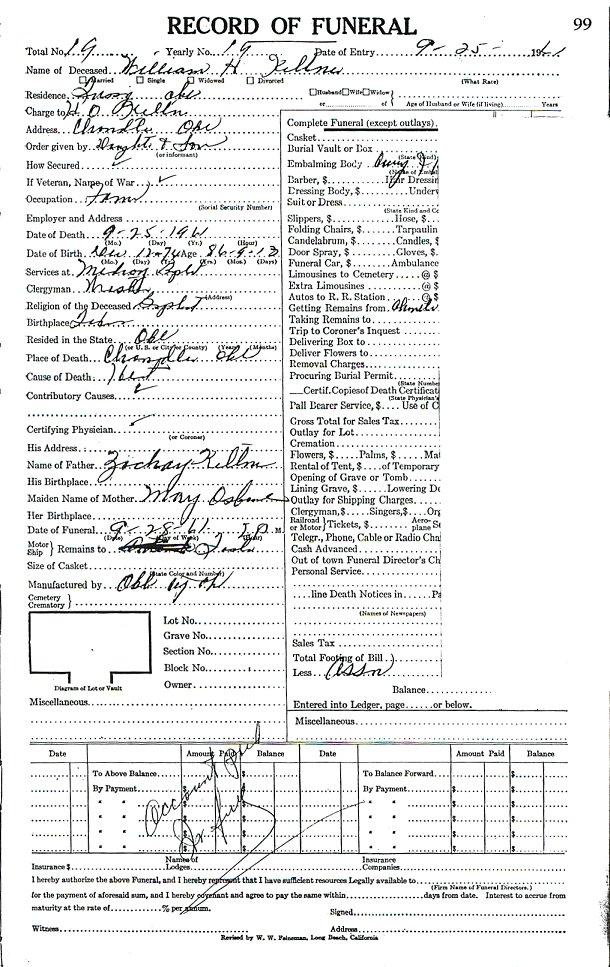 RECORD OF FUNERAL
99
Total No. 19 Yearly No. 19 Date of Entry 9-25-1961
Name of Deceased William H
Married Single Widowed Divorced (What Race)
Residence Okl Husband Wife Widow or of Age of Husband or Wife (if living) Years
Charge to H. O.
Address Chandler Okl
Order given by Daughter & Son
(or informant)
How Secured
If Veteran, Name of War
Occupation Farmer
(Social Security Number)
Employer and Address
Date of Death 9-25-1961
(Mo.) (Day) (Yr.) (Hour)
Date of Birth Dec 12-74 Age 86-9-13
(Mo.) (Day) (Yr.) (Yrs.) (Mos.) (Days)
Services at
Clergyman
(Address)
Religion of the Deceased Bapt
Birthplace Tenn
Resided in the State Okl
(or U. S. or City or County) (Years) (Months)
Place of Death Chandler Okl
Cause of Death
Contributory Causes
Certifying Physician
(or Coroner)
His Address
Name of Father
His Birthplace
Maiden Name of Mother Mary
Her Birthplace
Date of Funeral 9-28-61 M.
(Date) (Day of Week) (Hour)
Motor Ship Remains to
Size of Casket
(State Color and Number)
Manufactured by Okl
Cemetery
Crematory
Lot No.
Grave No.
Section No.
Block No.
Owner
Diagram of Lot or Vault
Miscellaneous
Complete Funeral (except outlays)
Casket
Burial Vault or Box
(State Kind)
Embalming Body
Barber, $ Hair Dressin
Dressing Body, $ Underv
Suit or Dress
(State Kind and Co
Slippers, $ Hose, $
Folding Chairs, $ Tarpaulin
Candelabrum, $ Candles, $
Door Spray, $ Gloves, $
Funeral Car, $ Ambulance
Limousines to Cemetery @
Extra Limousines @
Autos to R. R. Station @
Getting Remains from
Taking Remains to
Trip to Coroner's Inquest
Delivering Box to
Deliver Flowers to
Removal Charges
Procuring Burial Permit
(State Number
Certif. Copies of Death Certificat
(State Physician's
Pall Bearer Service, $ Use of C
Gross Total for Sales Tax
Outlay for Lot
Cremation
Flowers, $ Palms, $ Mat
Rental of Tent, $ of Temporary
Opening of Grave or Tomb
Lining Grave, $ Lowering De
Outlay for Shipping Charges
Clergyman, $ Singers, $ Org
Railroad or Motor Tickets, $ Aero-plane Se
Telegr., Phone, Cable or Radio Cha
Cash Advanced
Out of town Funeral Director's Ch
Personal Service
line Death Notices in Pa
(Names of Newspapers)
Sales Tax
Total Footing of Bill
Less Assn
Balance
Entered into Ledger, page or below.
Miscellaneous
Date Amount Paid Balance Date Amount Paid Balance
To Above Balance $ $ To Balance Forward $ $
By Payment By Payment
Account
Insurance $ Names of Lodges Insurance Companies
I hereby authorize the above Funeral, and I hereby represent that I have sufficient resources Legally available to
(Firm Name of Funeral Directors.)
for the payment of aforesaid sum, and I hereby covenant and agree to pay the same within days from date. Interest to accrue from
maturity at the rate of % per annum. Signed
Witness Address
Revised by W. W. Feineman, Long Beach, California